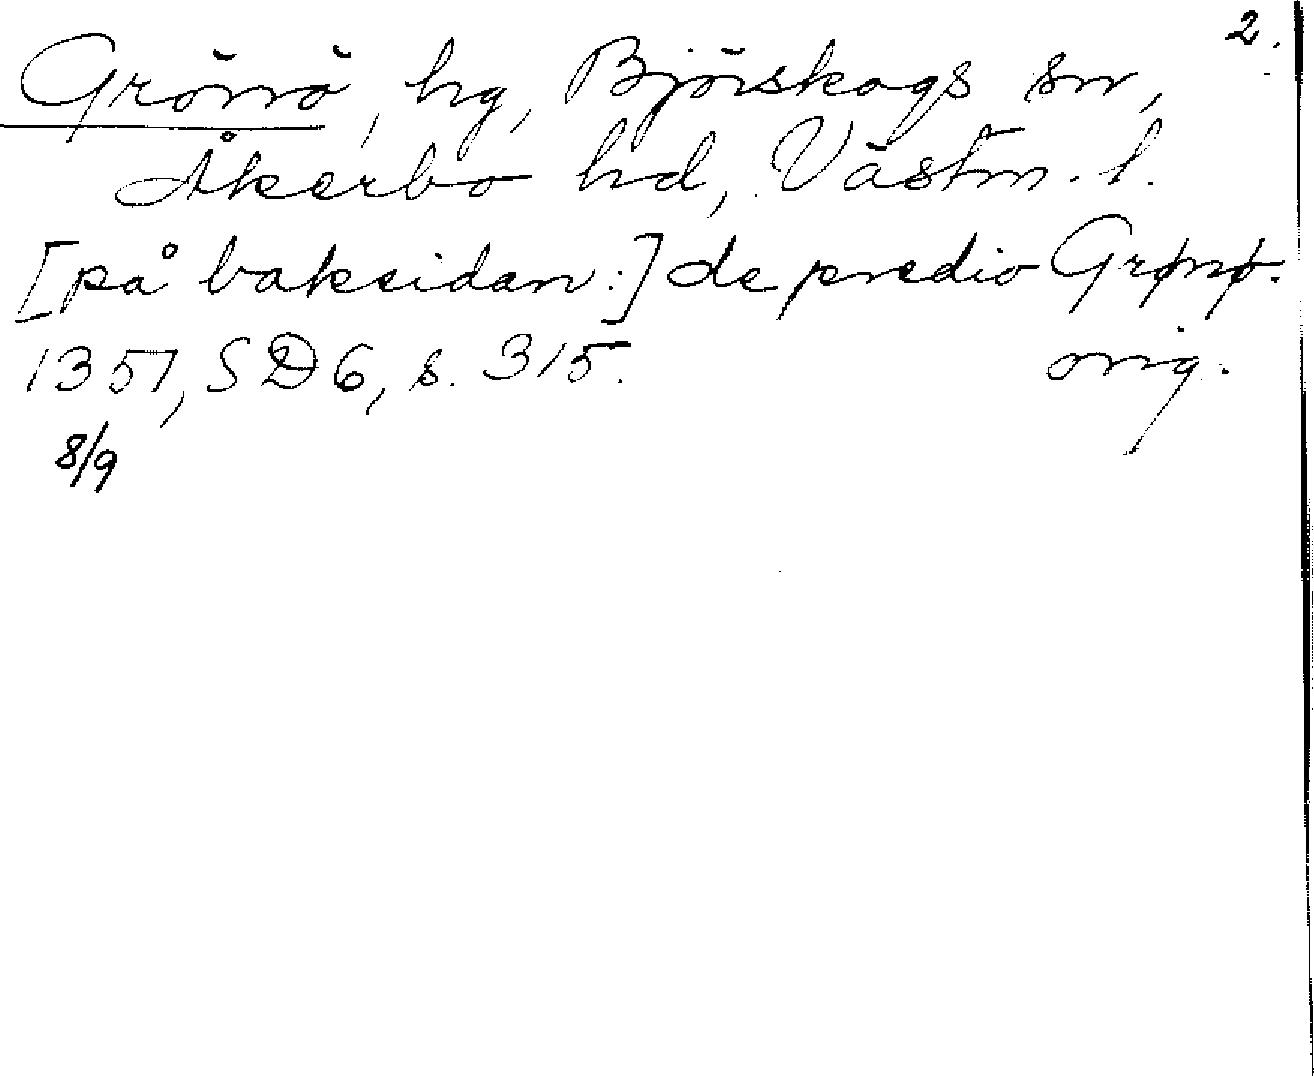 2.
Grönö, hg, Björskogs sn,
Åkerbo hd, Västm. l.
[på baksidan:] de predio Grønø.
1351, SD 6, s. 315. orig.
8/9